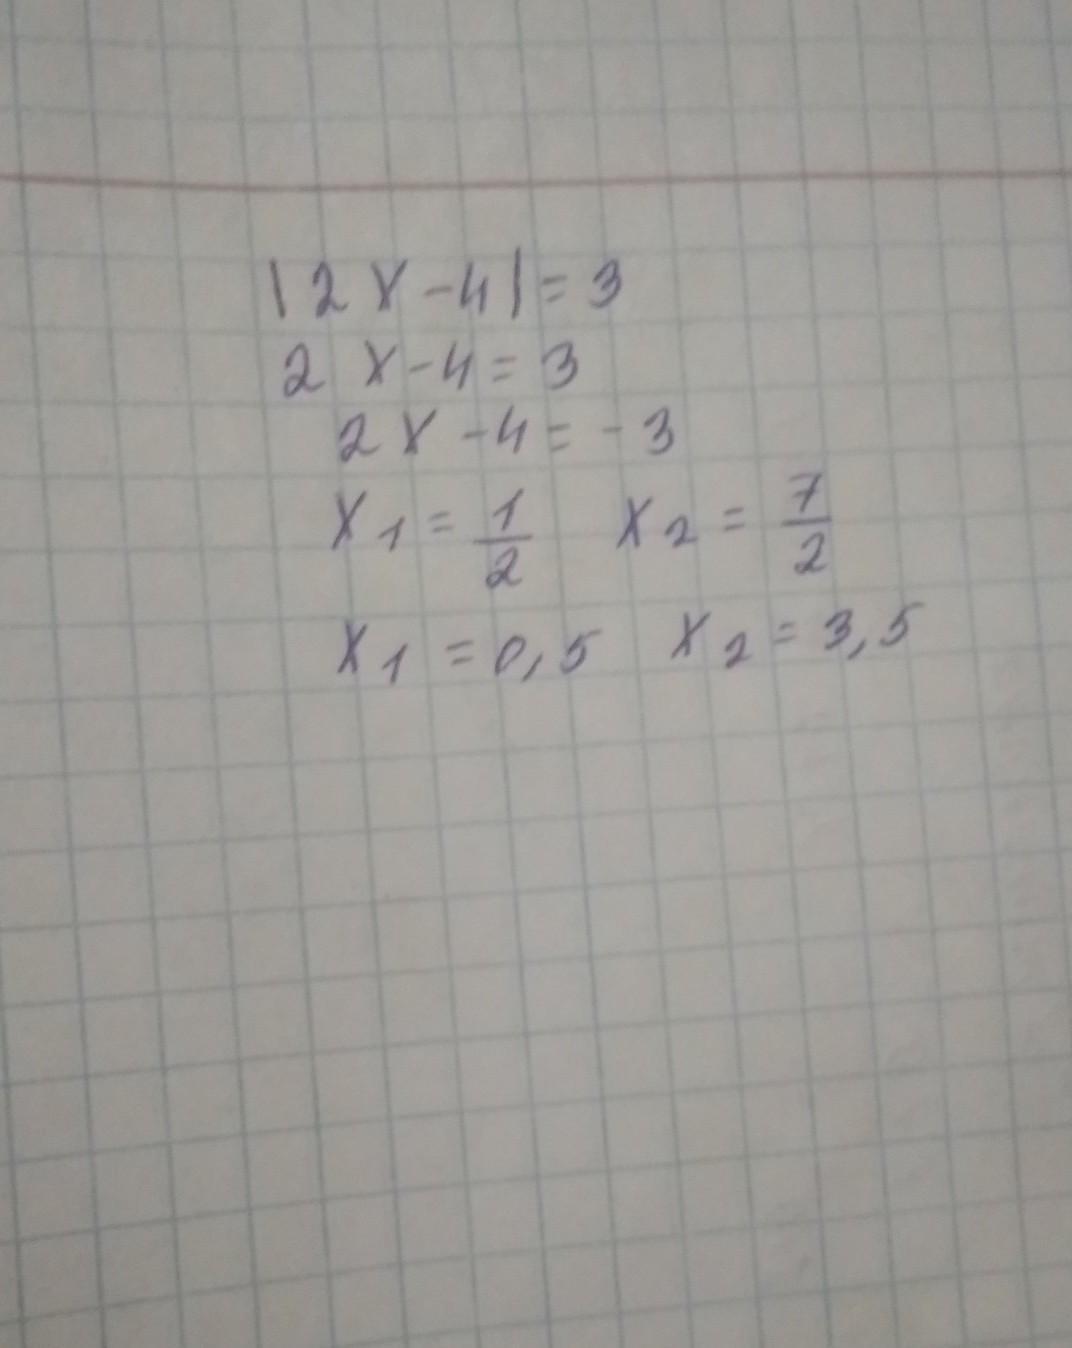 |2x-4|=3
2x-4=3
2x-4=-3
x₁=1/2 x₂=7/2
x₁=0,5 x₂=3,5